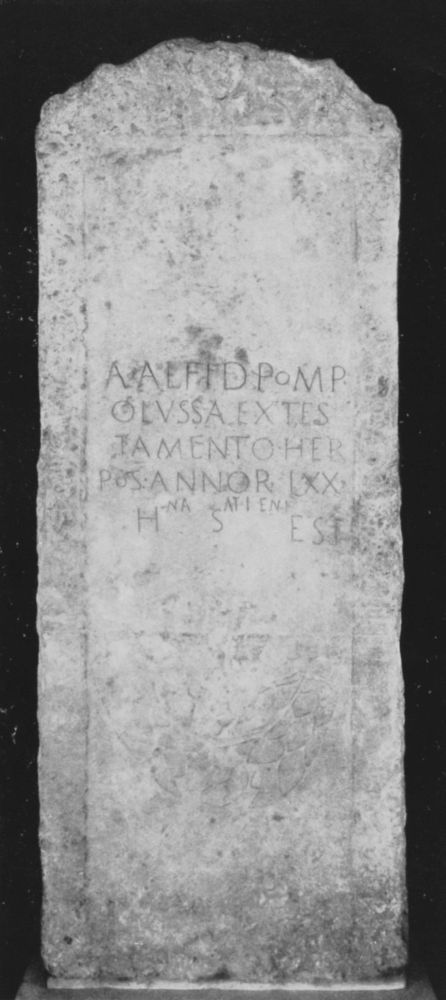 A·ALFID·POMP
OLVSSA·EXTES
TAMENTO·HER
POS·ANNOR·LXX·
H NA S ATIENI
EST